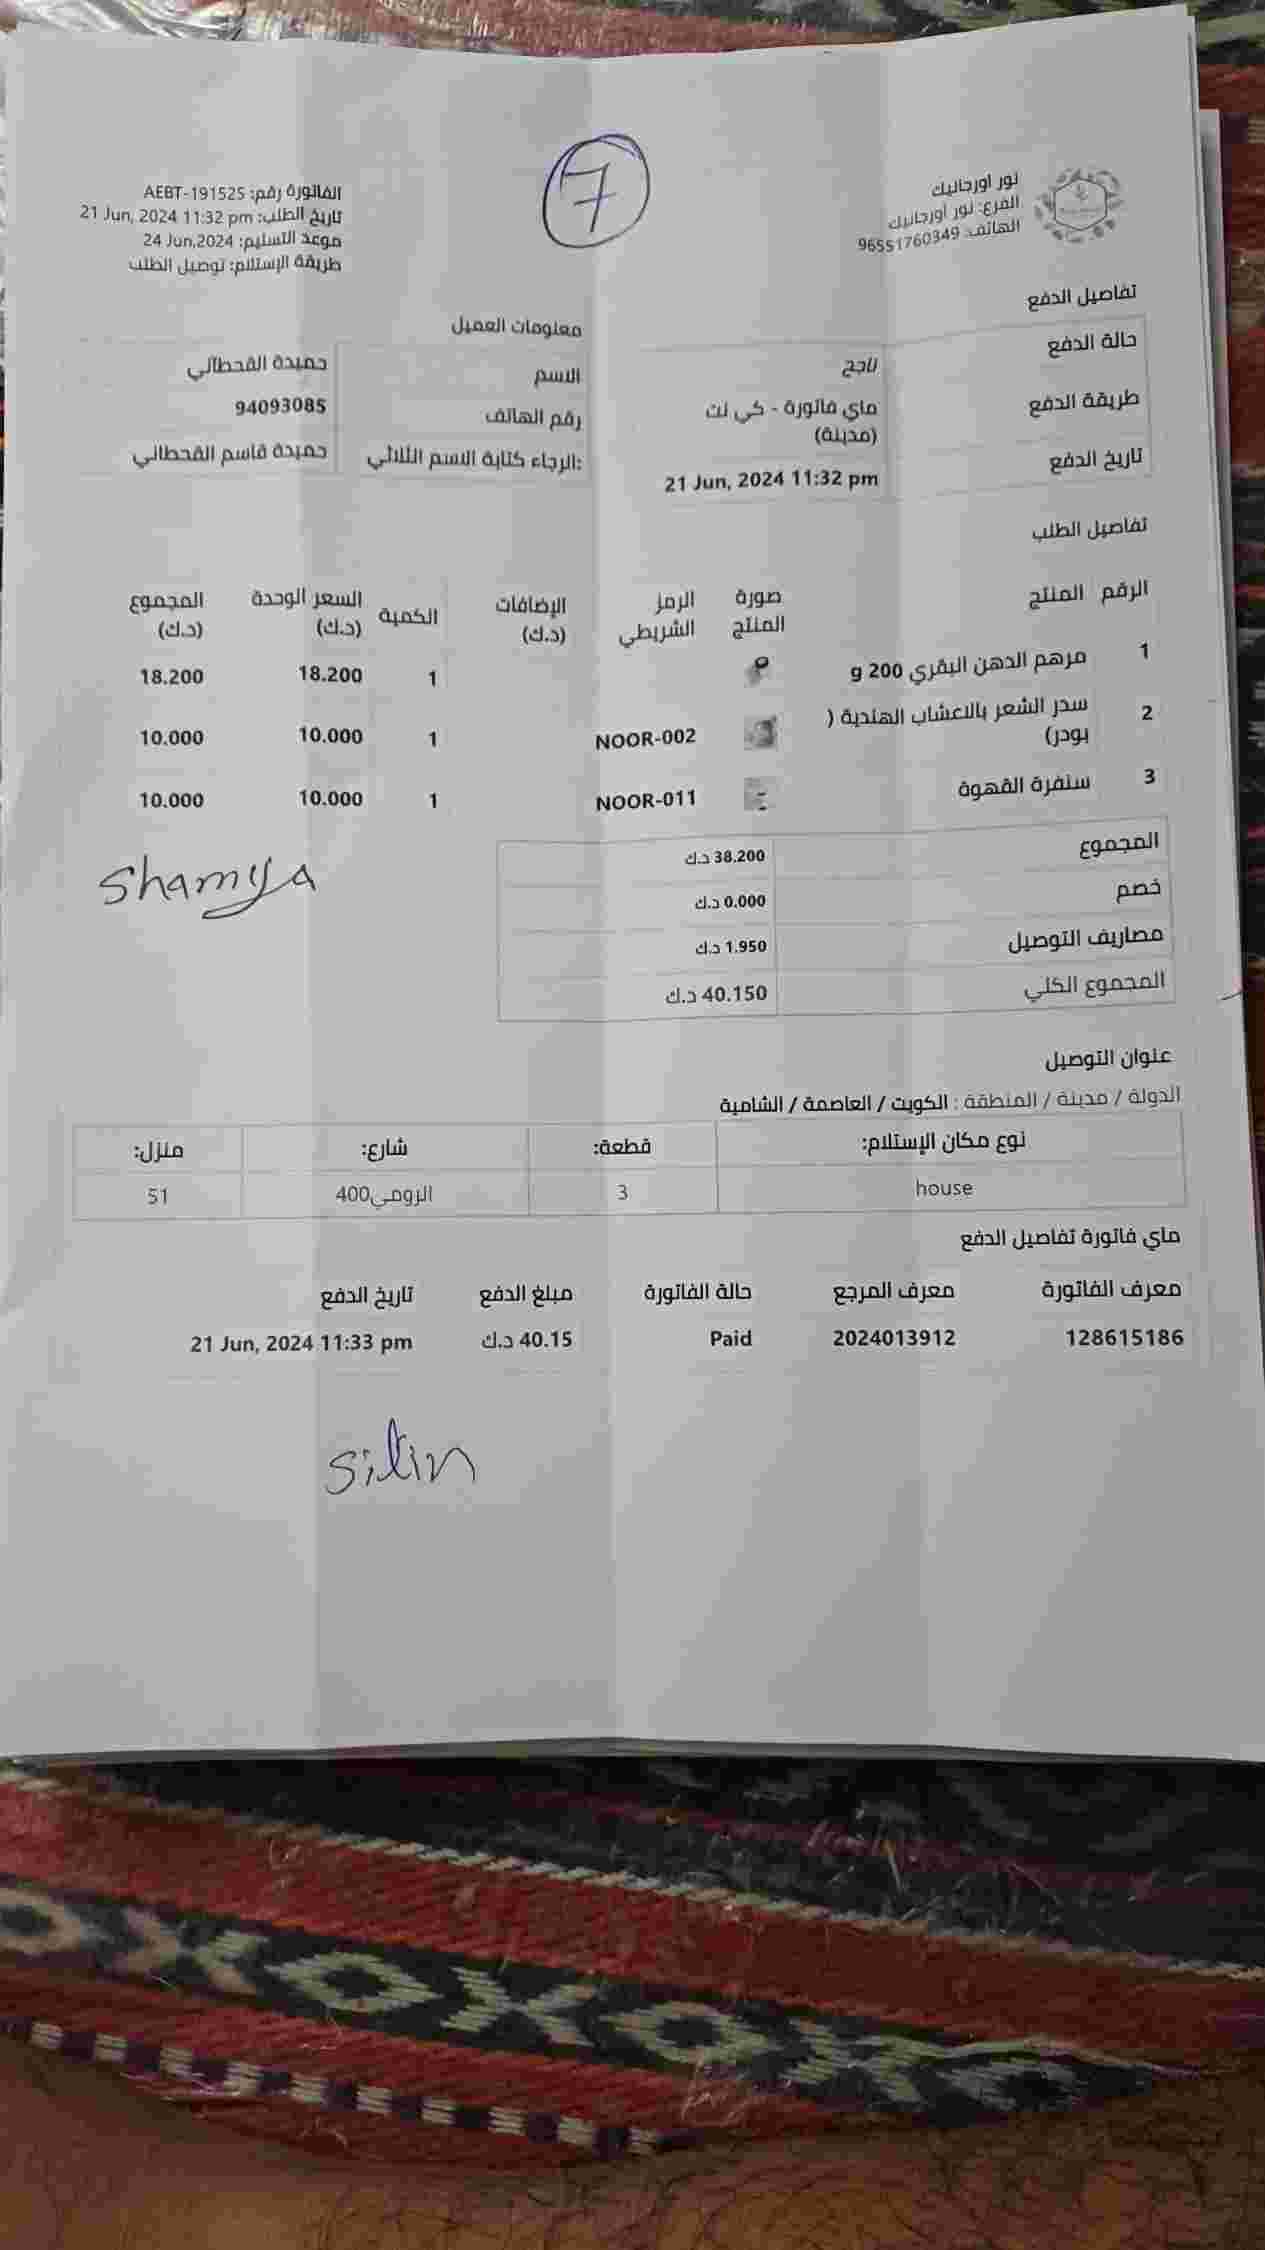 7
نور اورجانيك
الفرع: نور اورجانيك
الهاتف: 96551760349
الفاتورة رقم: AEBT-191525
تاريخ الطلب: 21 Jun, 2024 11:32 pm
موعد التسليم: 24 Jun,2024
طريقة الإستلام: توصيل الطلب
تفاصيل الدفع
حالة الدفع ناجح
طريقة الدفع ماي فاتورة - كي نت (مدينة)
تاريخ الدفع 21 Jun, 2024 11:32 pm
معلومات العميل
الاسم حميدة القحطاني
رقم الهاتف 94093085
الرجاء كتابة الاسم الثلاثي: حميدة قاسم القحطاني
تفاصيل الطلب
الرقم المنتج صورة المنتج الرمز الشريطي الإضافات (د.ك) الكمية السعر الوحدة (د.ك) المجموع (د.ك)
1 مرهم الدهن البقري 200 g 1 18.200 18.200
2 سدر الشعر بالاعشاب الهندية ( بودر) NOOR-002 1 10.000 10.000
3 سنفرة القهوة NOOR-011 1 10.000 10.000
المجموع 38.200 د.ك
خصم 0.000 د.ك
مصاريف التوصيل 1.950 د.ك
المجموع الكلي 40.150 د.ك
Shamya
عنوان التوصيل
الدولة / مدينة / المنطقة : الكويت / العاصمة / الشامية
نوع مكان الإستلام: قطعة: شارع: منزل:
house 3 الرومي400 51
ماي فاتورة تفاصيل الدفع
معرف الفاتورة معرف المرجع حالة الفاتورة مبلغ الدفع تاريخ الدفع
128615186 2024013912 Paid 40.15 د.ك 21 Jun, 2024 11:33 pm